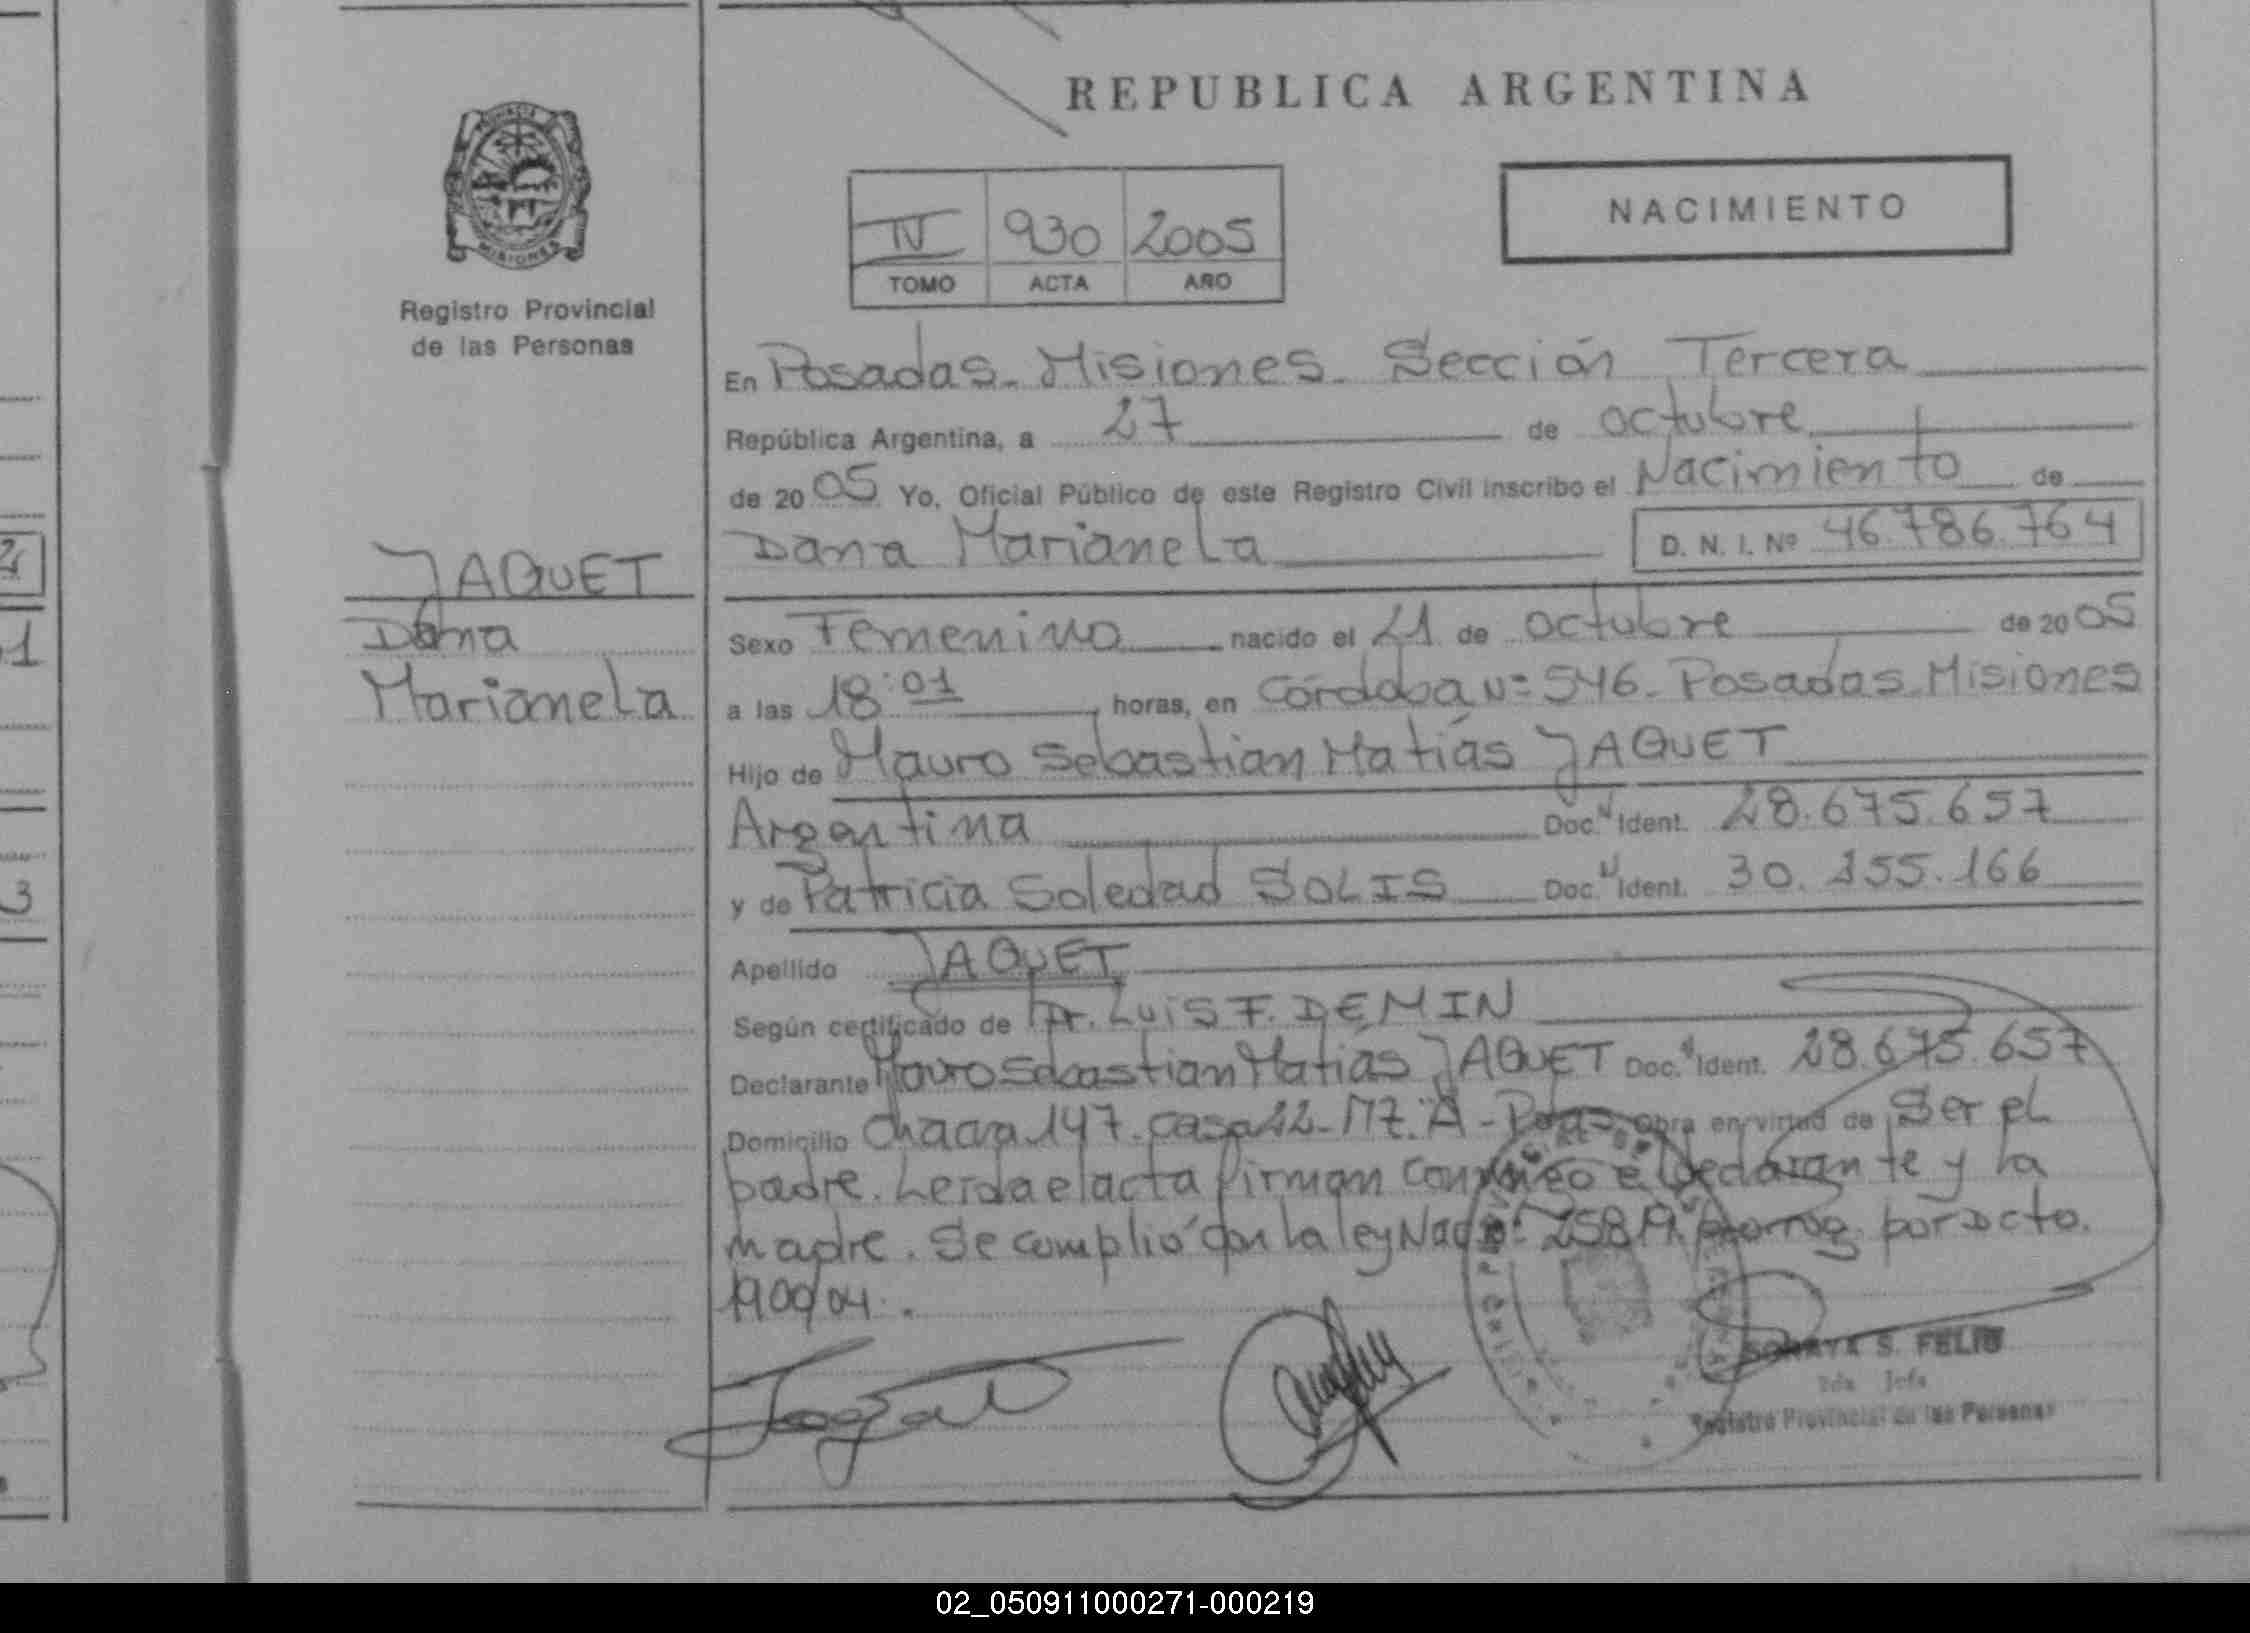 REPUBLICA ARGENTINA
PROVINCIA DE MISIONES
Registro Provincial
de las Personas
IV 930 2005
TOMO ACTA AÑO
NACIMIENTO
En Posadas - Misiones - Sección Tercera
República Argentina, a 27 de octubre
de 2005 Yo, Oficial Público de este Registro Civil inscribo el Nacimiento de
Dana Marianela D. N. I. Nº 46.786.764
JAQUET
Dana
Marianela
Sexo Femenino nacido el 21 de octubre de 2005
a las 18:01 horas, en Córdoba Nº 546 - Posadas - Misiones
Hijo de Mauro Sebastian Matías JAQUET
Argentina Doc. Ident. 28.675.657
y de Patricia Soledad SOLIS Doc. Ident. 30.255.166
Apellido JAQUET
Según certificado de Dr. Luis F. DEMIN
Declarante Mauro Sebastian Matías JAQUET Doc. Ident. 28.675.657
Domicilio chacra 147 - casa 22 - Mz. "A" - Pdas obra en virtud de Ser el
padre. Leida el acta firman conmigo el declarante y la
madre. Se cumplió con la ley Nac Nº 25819 prorrog. por Dcto.
1900/04.
SORAYA S. FELIU
2da Jefa
Registro Provincial de las Personas
02_050911000271-000219